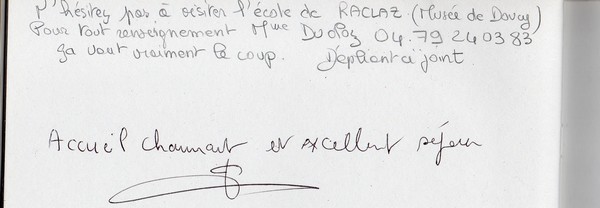 N'hésitez pas à visiter l'école de RACLAZ (Musée de Douvy)
Pour tout renseignement Mme Duoloz 04.79 24 03 83
ça vaut vraiment le coup. Dépliant ci joint
Accueil charmant et excellent séjour